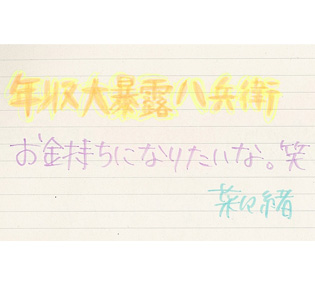 年収大暴露八兵衛
お金持ちになりたいな。笑
菜々緒